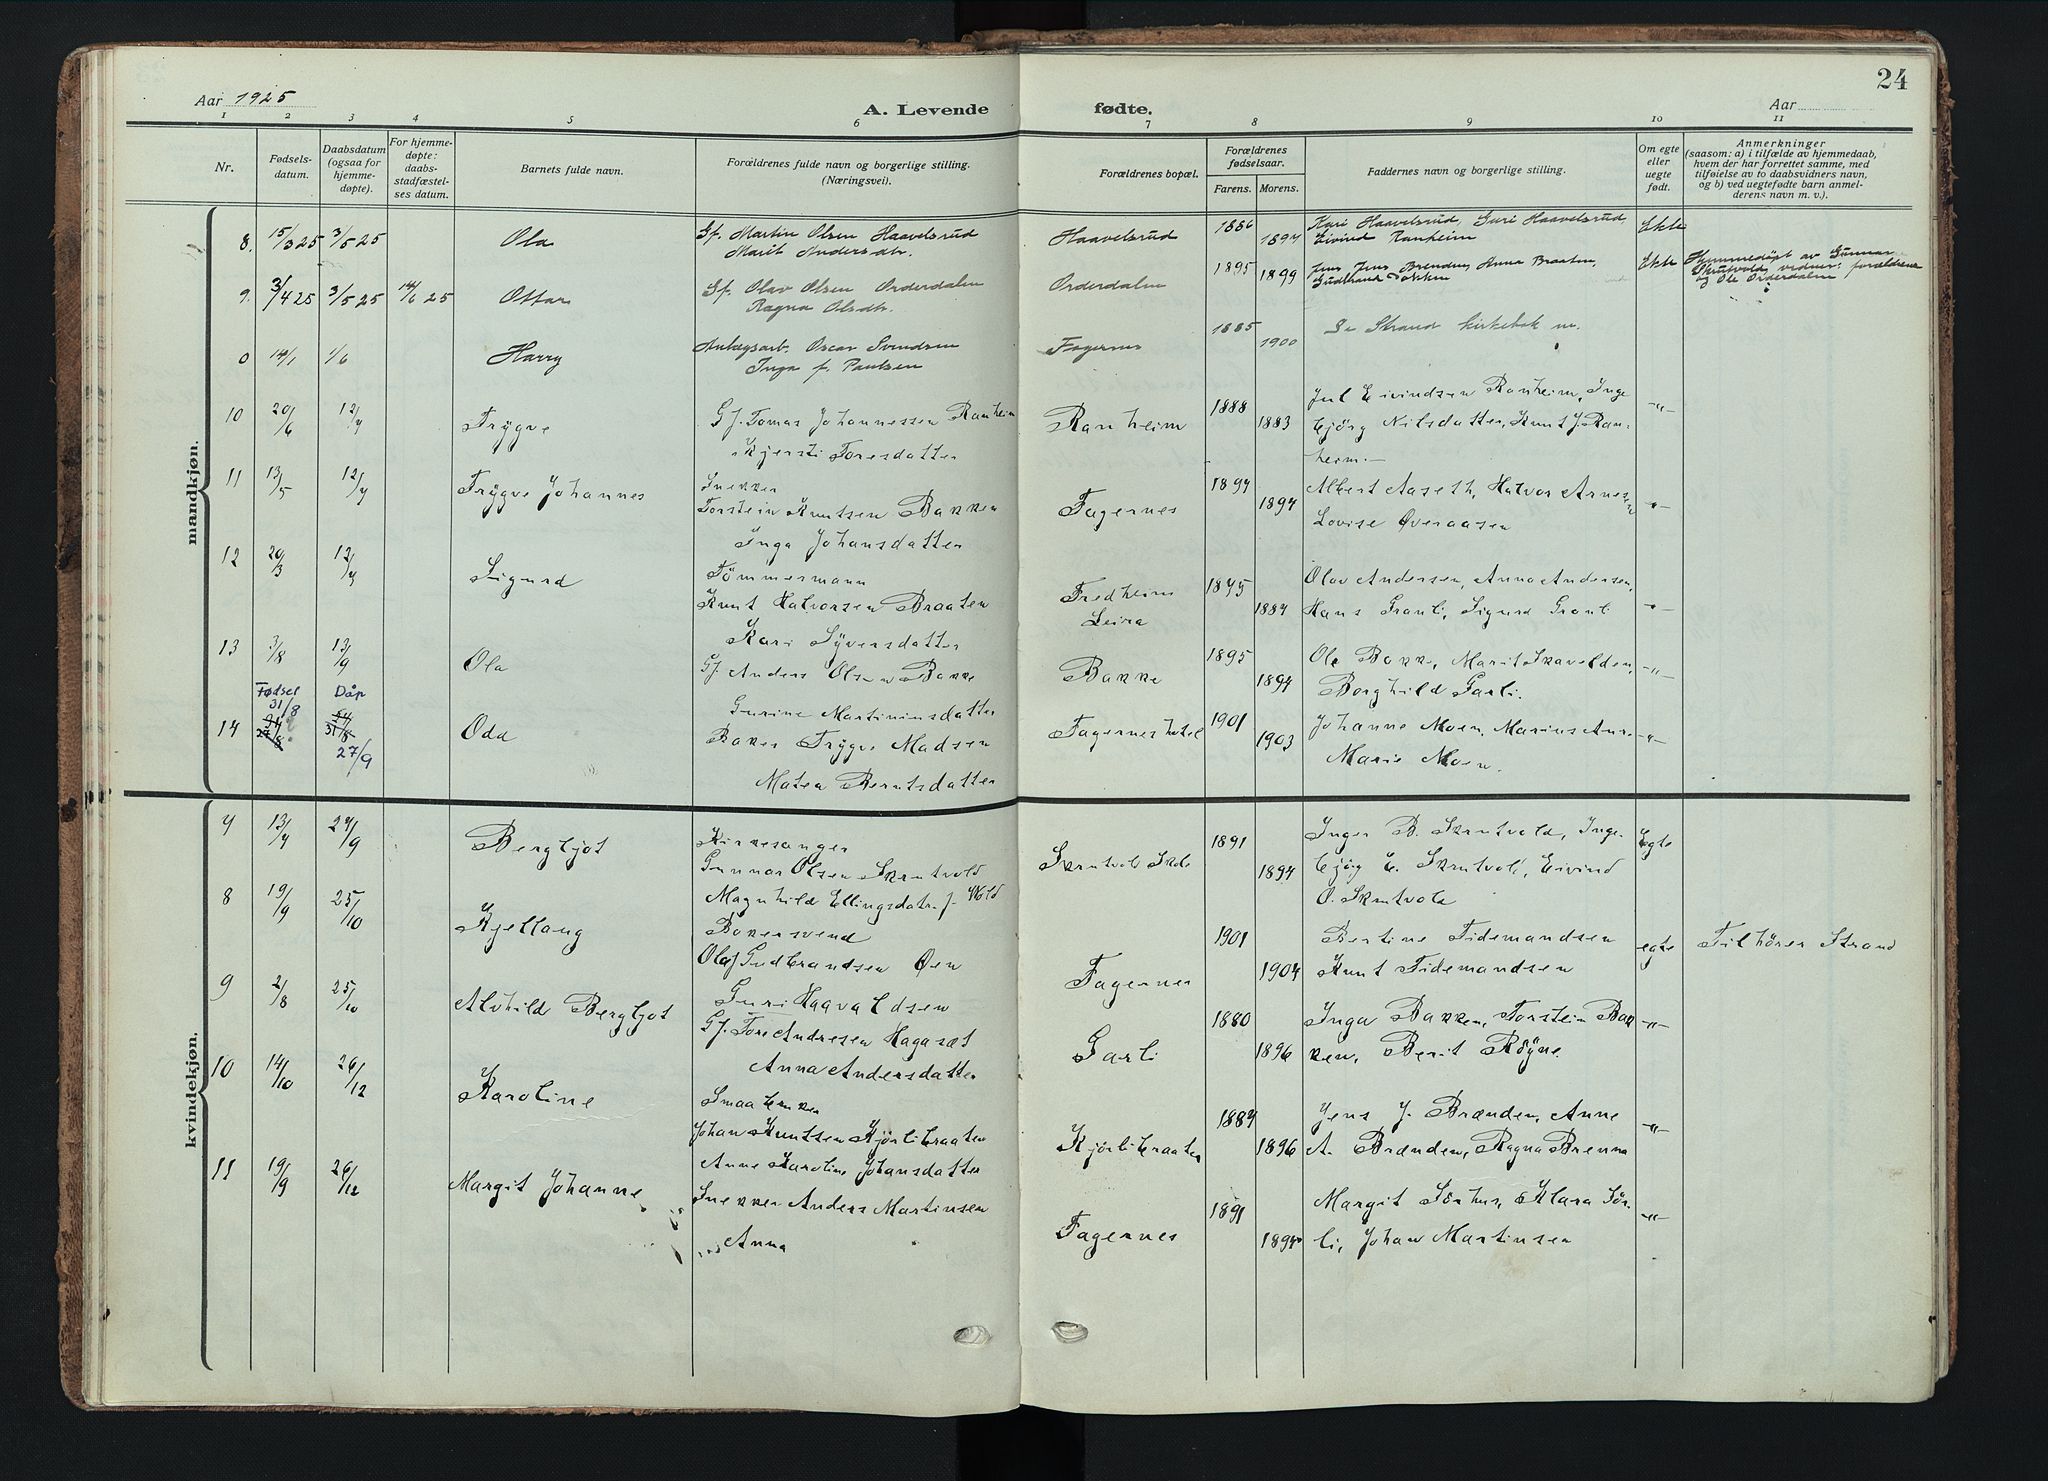 24
Aar 1925
A. Levende fødte.
Aar
1 2 3 4 5 6 7 8 9 10 11
Nr.
Fødsels-
datum.
Daabsdatum
(ogsaa for
hjemme-
døpte).
For hjemme-
døpte:
daabs-
stadfæstel-
ses datum.
Barnets fulde navn.
Forældrenes fulde navn og borgerlige stilling.
(Næringsvei).
Forældrenes bopæl.
Forældrenes
fødselsaar.
Farens. Morens.
Faddernes navn og borgerlige stilling.
Om egte
eller
uegte
født.
Anmerkninger
(saasom: a) i tilfælde av hjemmedaab,
hvem der har forrettet samme, med
tilføielse av to daabsvidners navn,
og b) ved uegtefødte barn anmel-
derens navn m. v.).
mandkjøn.
8. 15/3 25 3/5 25 Ola Gf. Martin Olsen Haavelsrud Haavelsrud 1886 Kari Haavelsrud, Guri Haavelsrud Ekte
Marit Andersdtr. 1894 Eivind Ranheim
9. 3/4 25 3/5 25 14/6 25 Ottar Gf. Olav Olsen Orderdalen Orderdalen 1895 1899 Jens Brenden, Anna Braaten, Ekte Hjemmedøpt av Gunnar
Ragna Olsdtr. Gudbrand Skrutvold, vidner: forældrene
og Ole Orderdalen
0 14/1 1/6 Harry Anlægsarb. Oscar Svendsen Fagernes 1885 Se Strand kirkebok nr.
Inga f. Paulsen 1900
10 20/6 12/7 Trygve Gf. Tomas Johannessen Ranheim Ranheim 1888 Jul Eivindsen Ranheim, Inge -"-
Kjersti Toresdatter 1883 björg Nilsdatter, Knut J. Ran-
heim.-
11 13/5 12/7 Trygve Johannes Snekker Fagernes 1897 Albert Aaseth, Halvor Arnesen -"-
Torstein Knutsen Bakken 1897 Lovise Øveraasen
Inga Johansdatter
12 20/3 12/7 Sigurd Tömmermann Fredheim 1875 Olav Andersen, Anna Andersen, -"-
Knut Halvorsen Braaten Leira 1887 Hans Granli, Sigurd Granli
Kari Syversdatter
13 3/8 13/9 Ola Gf Anders Olsen Bakke Bakke 1895 Ole Bakke, Marit Skavelden, -"-
Gurine Martiniusdatter 1897 Borghild Garli.
Fødsel Dåp
31/8
14 27/8 31/8 Oda Baker Trygve Madsen Fagernes hotel 1901 Johanne Moen, Marius -"-
27/9 Matea Berntsdatter 1903 Marie Moen.
kvindekjøn.
7 13/7 27/9 Bergljot Kirkesanger Skrutvold Skole 1891 Inger B. Skrutvold, Inge- Egte
Gunnar Olsen Skrutvold 1897 björg E. Skrutvold, Eivind
Magnhild Ellingsdatr. f. Wold O. Skrutvold
8 19/9 25/10 Kjellaug Bakersvend Fagernes 1901 Bertine Tidemandsen egte Tilhörer Strand
Olaf Gudbrandsen Øen 1904 Knut Tidemandsen
Guri Haavaldsen
9 2/8 25/10 Alvhild Bergljot Gf. Tore Andresen Hagaset Garli 1880 Inga Bakken, Torstein Bak -"-
Anna Andersdatter 1896 ken, Berit Röyne
10 14/10 26/12 Karoline Smaabruker Kjørlibraaten 1887 Jens J. Brænden, Anne -"-
Johan Knutsen Kjørlibraaten 1896 A. Brænden, Ragna Brenna
Anne Karoline Johansdatter
11 19/9 26/12 Margit Johanne Snekker Anders Martinsen Fagernes 1891 Margit Sörhus, Klara Sör- -"-
Anna 1897 li, Johan Martinsen